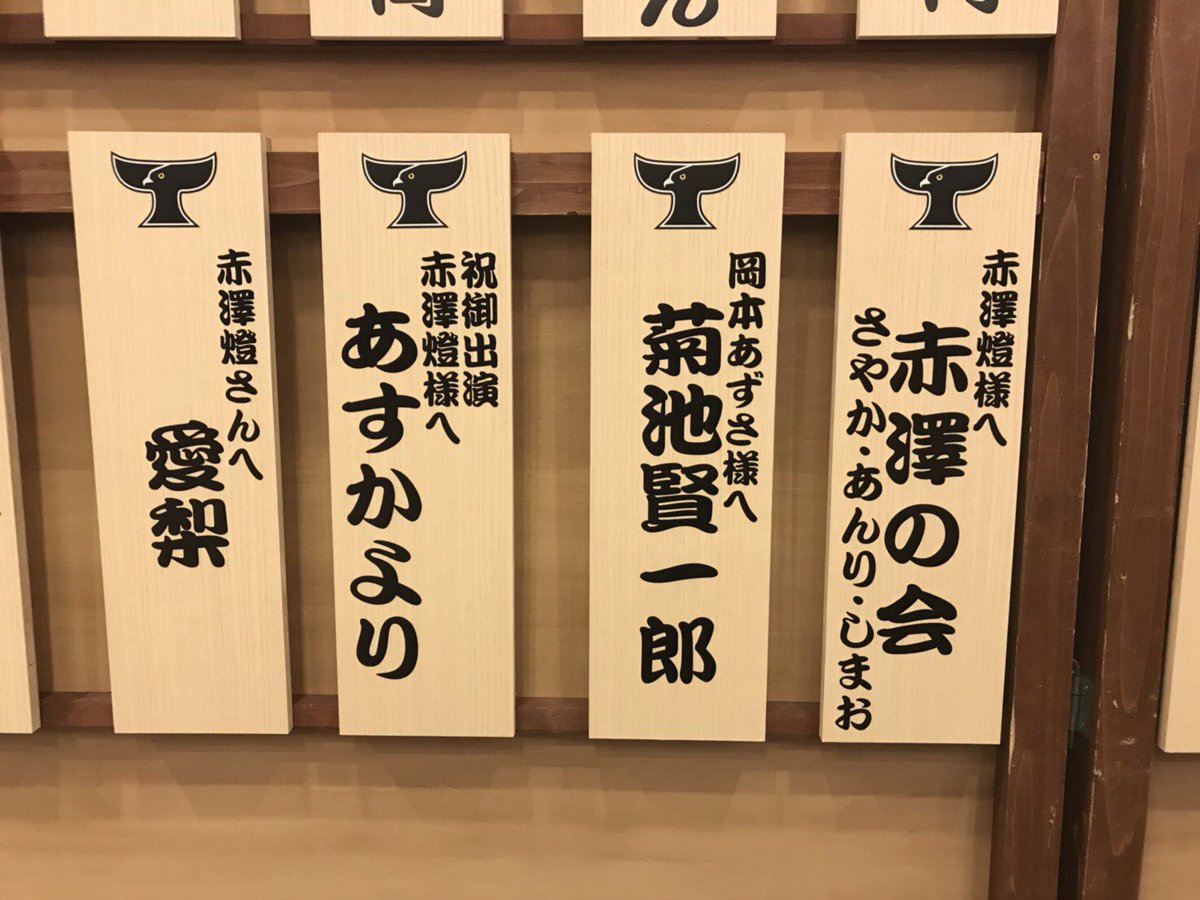 赤澤燈様へ
赤澤の会
さやか・あんり・しまお
岡本あずさ様へ
菊池賢一郎
祝御出演
赤澤燈様へ
あすかより
赤澤燈さんへ
愛梨